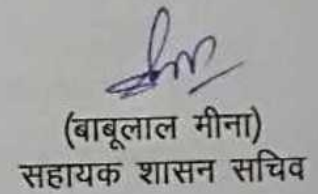 (बाबूलाल मीना)
सहायक शासन सचिव